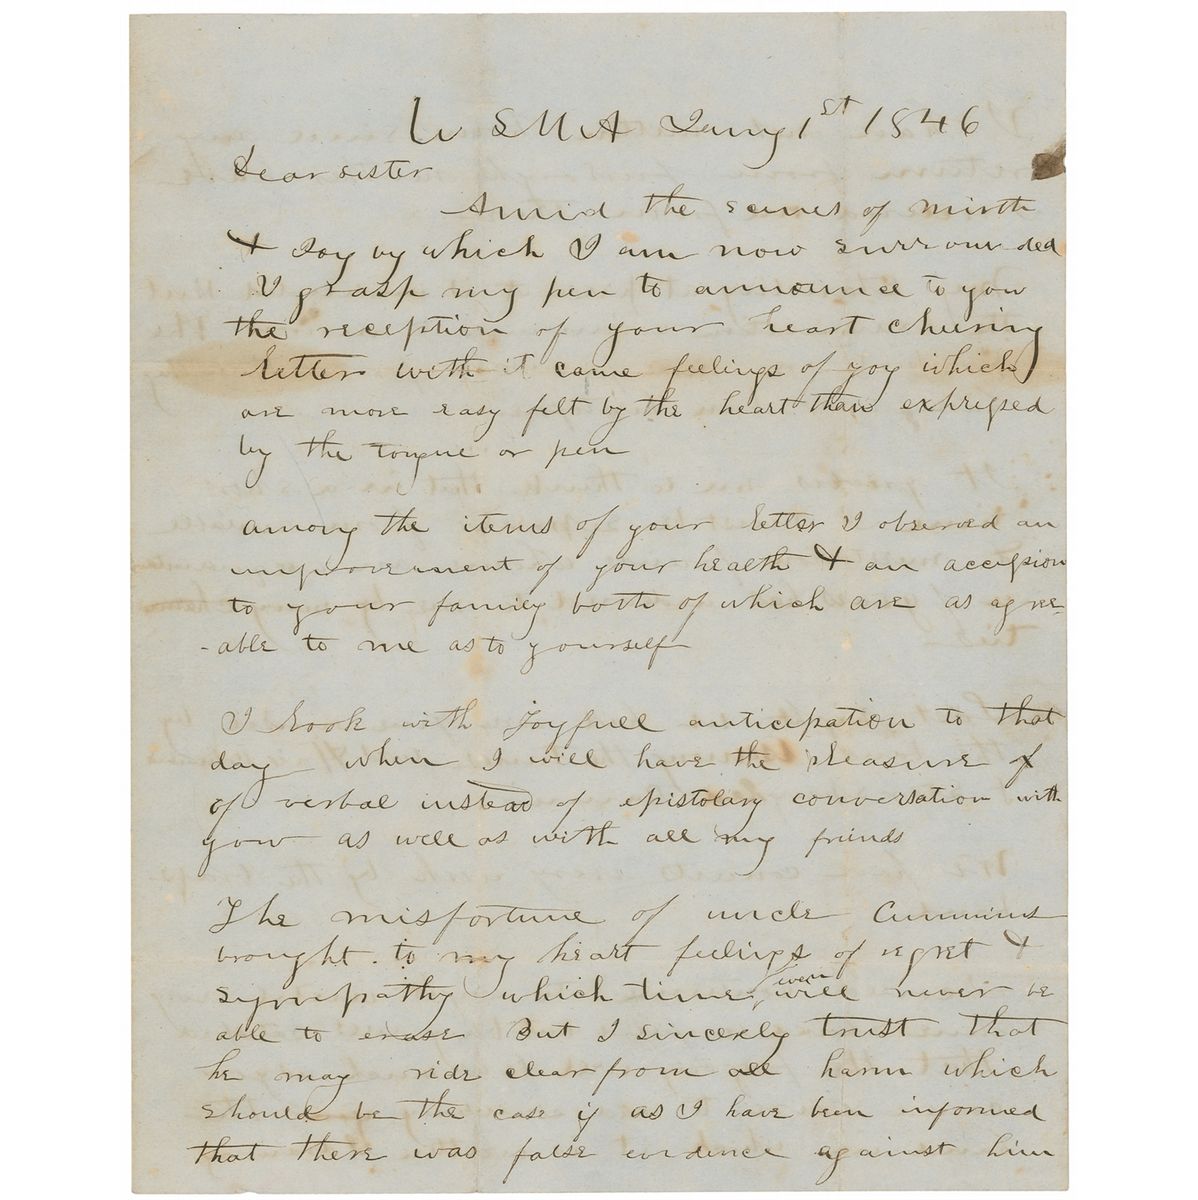 W S M A Jany 1st 1846
Dear sister
Amid the scenes of mirth
& Joy by which I am now surrounded
I grasp my pen to announce to you
the reception of your heart cheering
letter with it came feelings of joy which
are more easy felt by the heart than expressed
by the tongue or pen
among the items of your letter I observed an
improvement of your health & an accession
to your family both of which are as agree
-able to me as to yourself
I look with Joyfull anticipation to that
day when I will have the pleasure of
of verbal instead of epistolary conversation with
you as well as with all my friends
The misfortune of uncle Cummins
brought to my heart feelings of regret &
sympathy which time even will never be
able to erase But I sincerely trust that
he may ride clear from all harm which
should be the case if as I have been informed
that there was false evidence against him